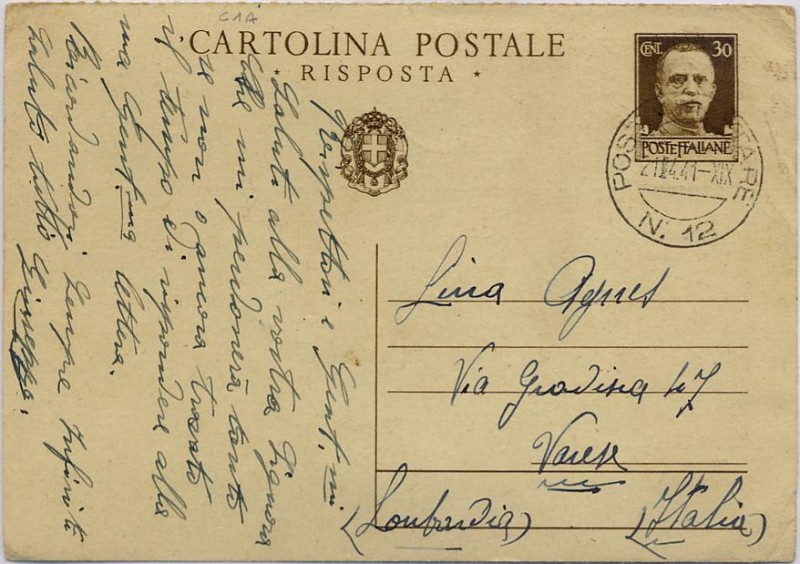 C1A
CARTOLINA POSTALE
RISPOSTA
CENT. 30
POSTE ITALIANE
POSTA MILITARE
21.4.41-XIX
N. 12
Lina Agnes
Via Gradisca 47
Varese
(Lombardia) (Italia)
Rispettosi e Gent.mi
Saluti alla vostra Signora
che mi perdonerà tanto
se non o ancora trovato
il tempo di rispondere alla
sua Gent.ma lettera.
Ricordandovi sempre Infiniti
saluti Giuseppe.